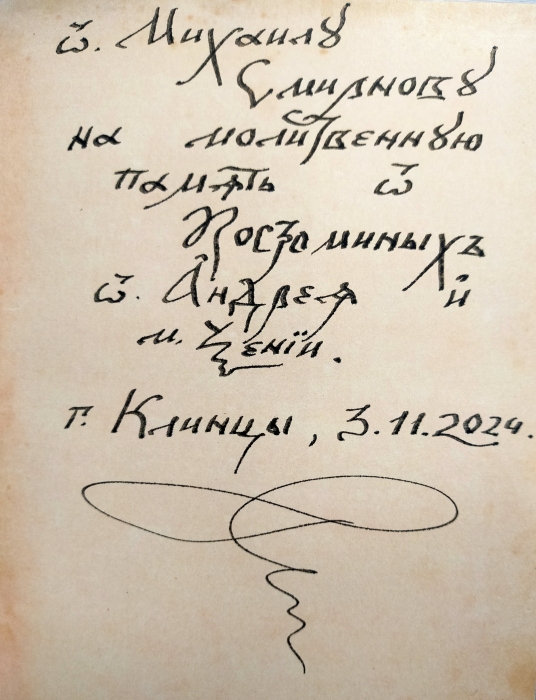 ѿ. Михаилꙋ
Смирновꙋ
на молитвеннꙋю
память ѿ
Костроминыхъ
ѿ. Андреѧ и
м. Ксенїи.
г. Клинцы, 3.11.2024.